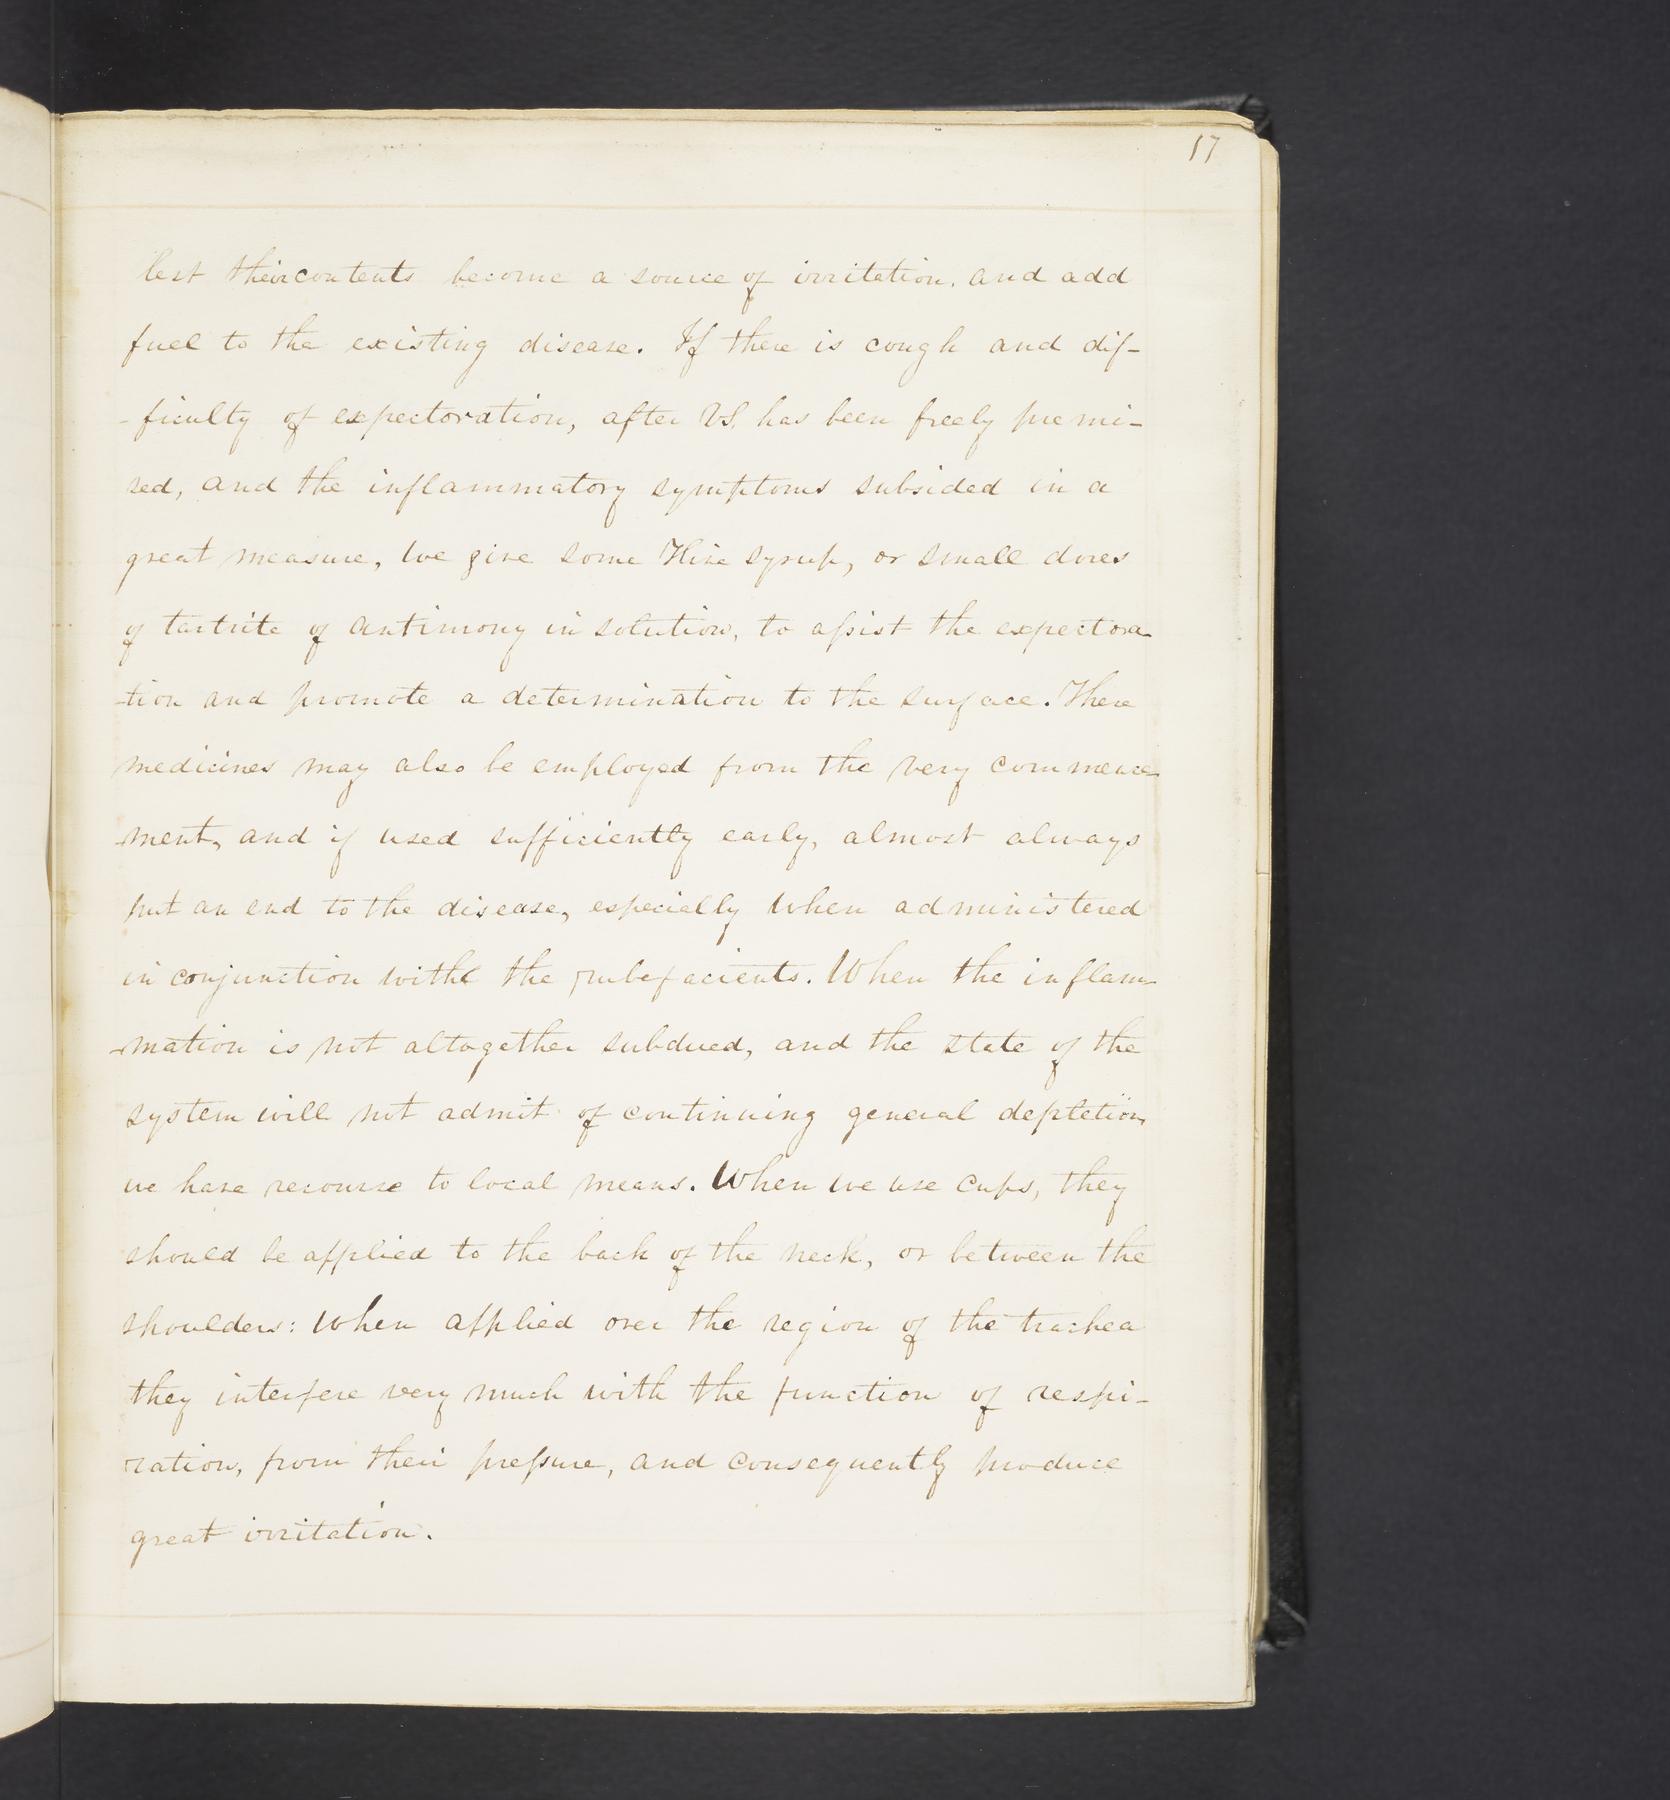 17
lest their contents become a source of irritation, and add
fuel to the existing disease. If there is cough and dif-
-ficulty of expectoration, after VS. has been freely premi-
sed, and the inflammatory symptoms subsided in a
great measure, we give some Hive syrup, or small doses
of tartrite of antimony in solution, to assist the expectora-
-tion and promote a determination to the surface. These
medicines may also be employed from the very commence-
-ment, and if used sufficiently early, almost always
put an end to the disease, especially when administered
in conjunction with the rubefacients. When the inflam-
-mation is not altogether subdued, and the state of the
system will not admit of continuing general depletion,
we have recourse to local means. When we use cups, they
should be applied to the back of the neck, or between the
shoulders: when applied over the region of the trachea
they interfere very much with the function of respi-
ration, from their pressure, and consequently produce
great irritation.